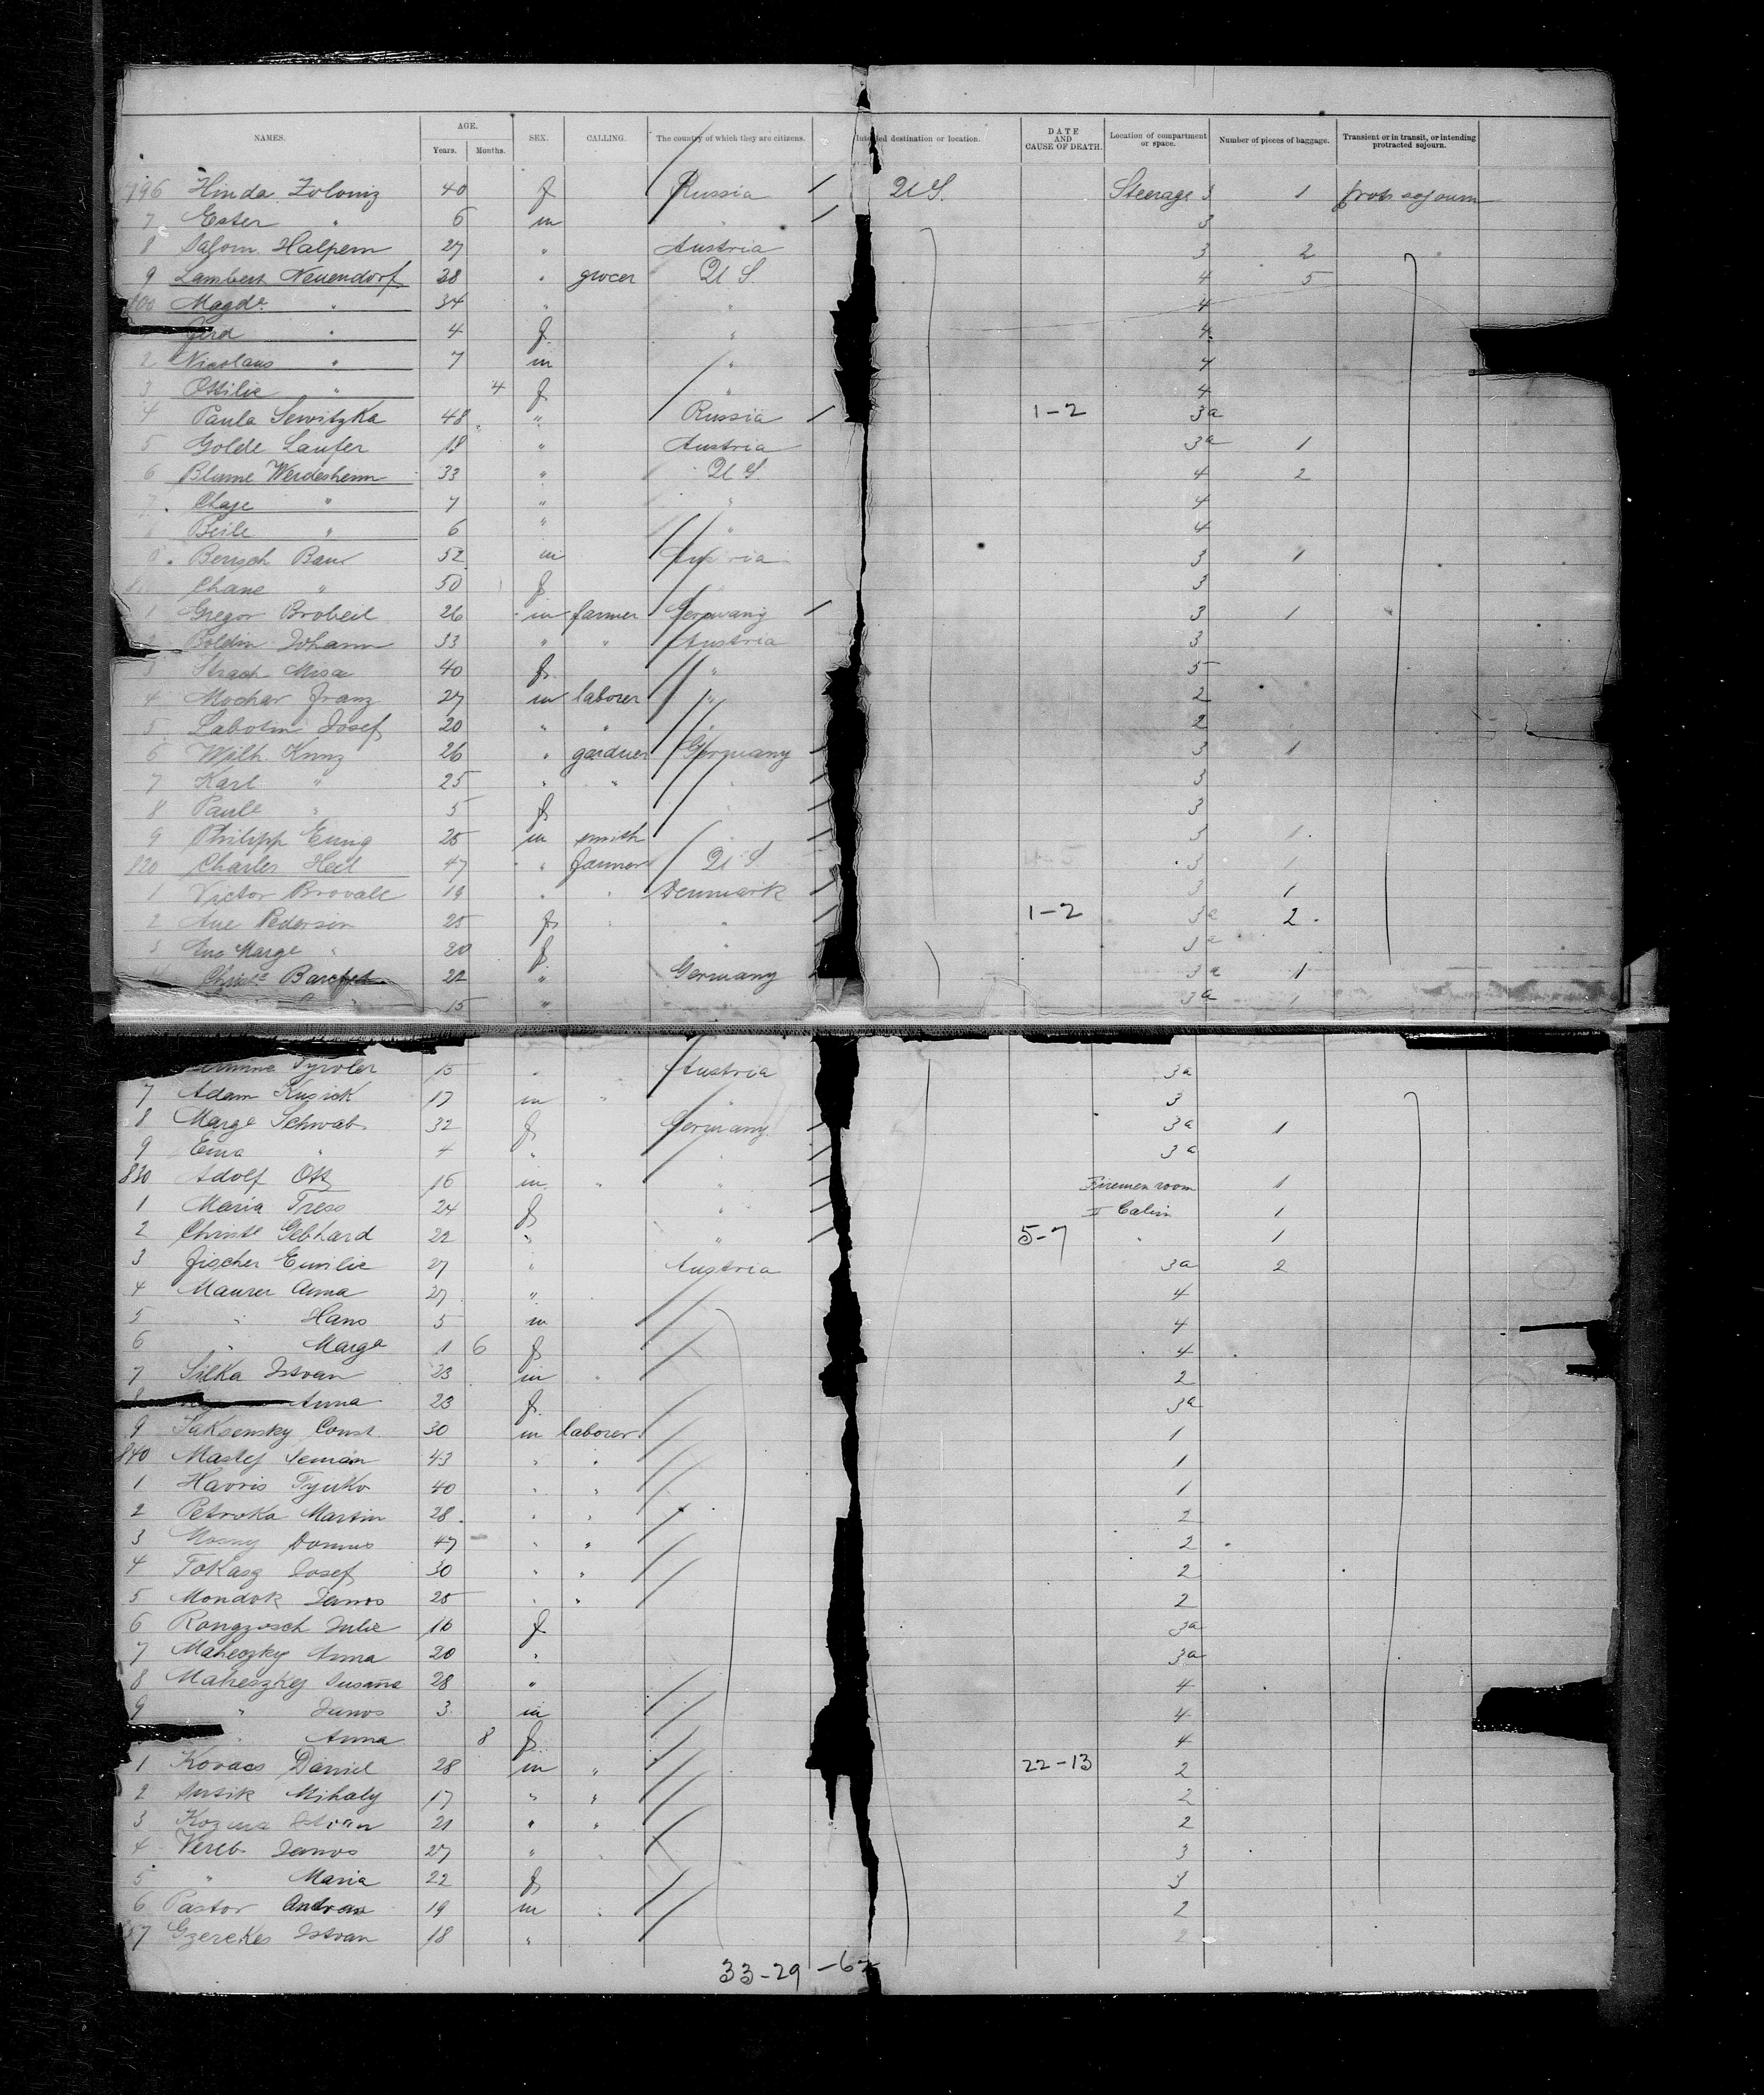 NAMES. AGE. Years. Months. SEX. CALLING. The country of which they are citizens. Intended destination or location. DATE AND CAUSE OF DEATH. Location of compartment or space. Number of pieces of baggage. Transient or in transit, or intending protracted sojourn.
796 Hinda 40 f Russia / U S. Steerage 3 1 prot sojourn
7 Ester " 6 m " / 3
8 Salom. Halpern 27 " Austria 3 2
9 Lambert Neuendorf 38 " grocer U S. 4 5
800 Magde " 34 " " 4
Gerd " 4 f " 4
2 Nicolaus " 7 m " 4
3 Ottilie " 4 f " 4
4 Paula Sewitzka 48 " Russia / 1-2 3a
5 Golde Laufer 18 " Austria 3a 1
6 Blume Werdesheim 33 " U S. 4 2
7 Chaje " 7 " " 4
Beile " 6 " " 4
Bensch Baur 52 m Austria 3 1
Chane " 50 f 3
1 Gregor Brobeil 26 m farmer Germany / 3 1
2 Boldin Johann 33 " " Austria 3
3 Strach Misa 40 f " 5
4 Mochar Franz 27 m laborer " 2
5 Josef 20 " " " 2
6 Wilh. Kunz 26 " gardner Germany / 3 1
7 Karl " 25 " " " / 3
8 Paule " 5 f " / 3
9 Philipp 25 m smith " 3 1
820 Charles Heil 47 " farmer U S. 3 1
1 Victor Brovall 19 " " Denmark / 3 1
2 Ane Pedersen 25 f " " / 1-2 3a 2
3 Ane Marge " 20 f " 3a
Christe 22 " Germany / 3a 1
15 " 3a 1
Tyroler 15 " Austria 3a
7 Adam Kusick 17 m " " 3
8 Marge Schwab 32 f Germany / 3a 1
9 Ema " 4 " " / 3a
830 Adolf Ott 16 m " " / Firemen room 1
1 Maria Tress 24 f " / II Cabin 1
2 Christe Gebhard 22 " " / 5-7 " 1
3 Fischer Emilie 27 " Austria 3a 2
4 Maurer Anna 27 " 4
5 " Hans 5 m 4
6 " Marge 1 6 f 4
7 Silka Istvan 23 m " 2
Anna 23 f 3a
9 Saksensky Const. 30 m laborer 1
840 Mastej Seman 43 " " 1
1 Havris 40 " " 1
2 Petroka Martin 28 " " 2
3 47 " " 2
4 Tokasz Josef 30 " " 2
5 Mondok Janos 25 " " 2
6 Julie 16 f 3a
7 Maheszky Anna 20 " 3a
8 Maheszky Susana 28 " 4
9 " Janos 3 m 4
" Anna 8 f 4
1 Kovacs Daniel 28 m " 22-13 2
2 Susik Mihaly 17 " " 2
3 Kozma Istvan 21 " " 2
4 Vereb Janos 27 " " 3
5 " Maria 22 f 3
6 Pastor Andras 19 m " 2
857 Gzerekes Istvan 18 " 2
33-29 -62